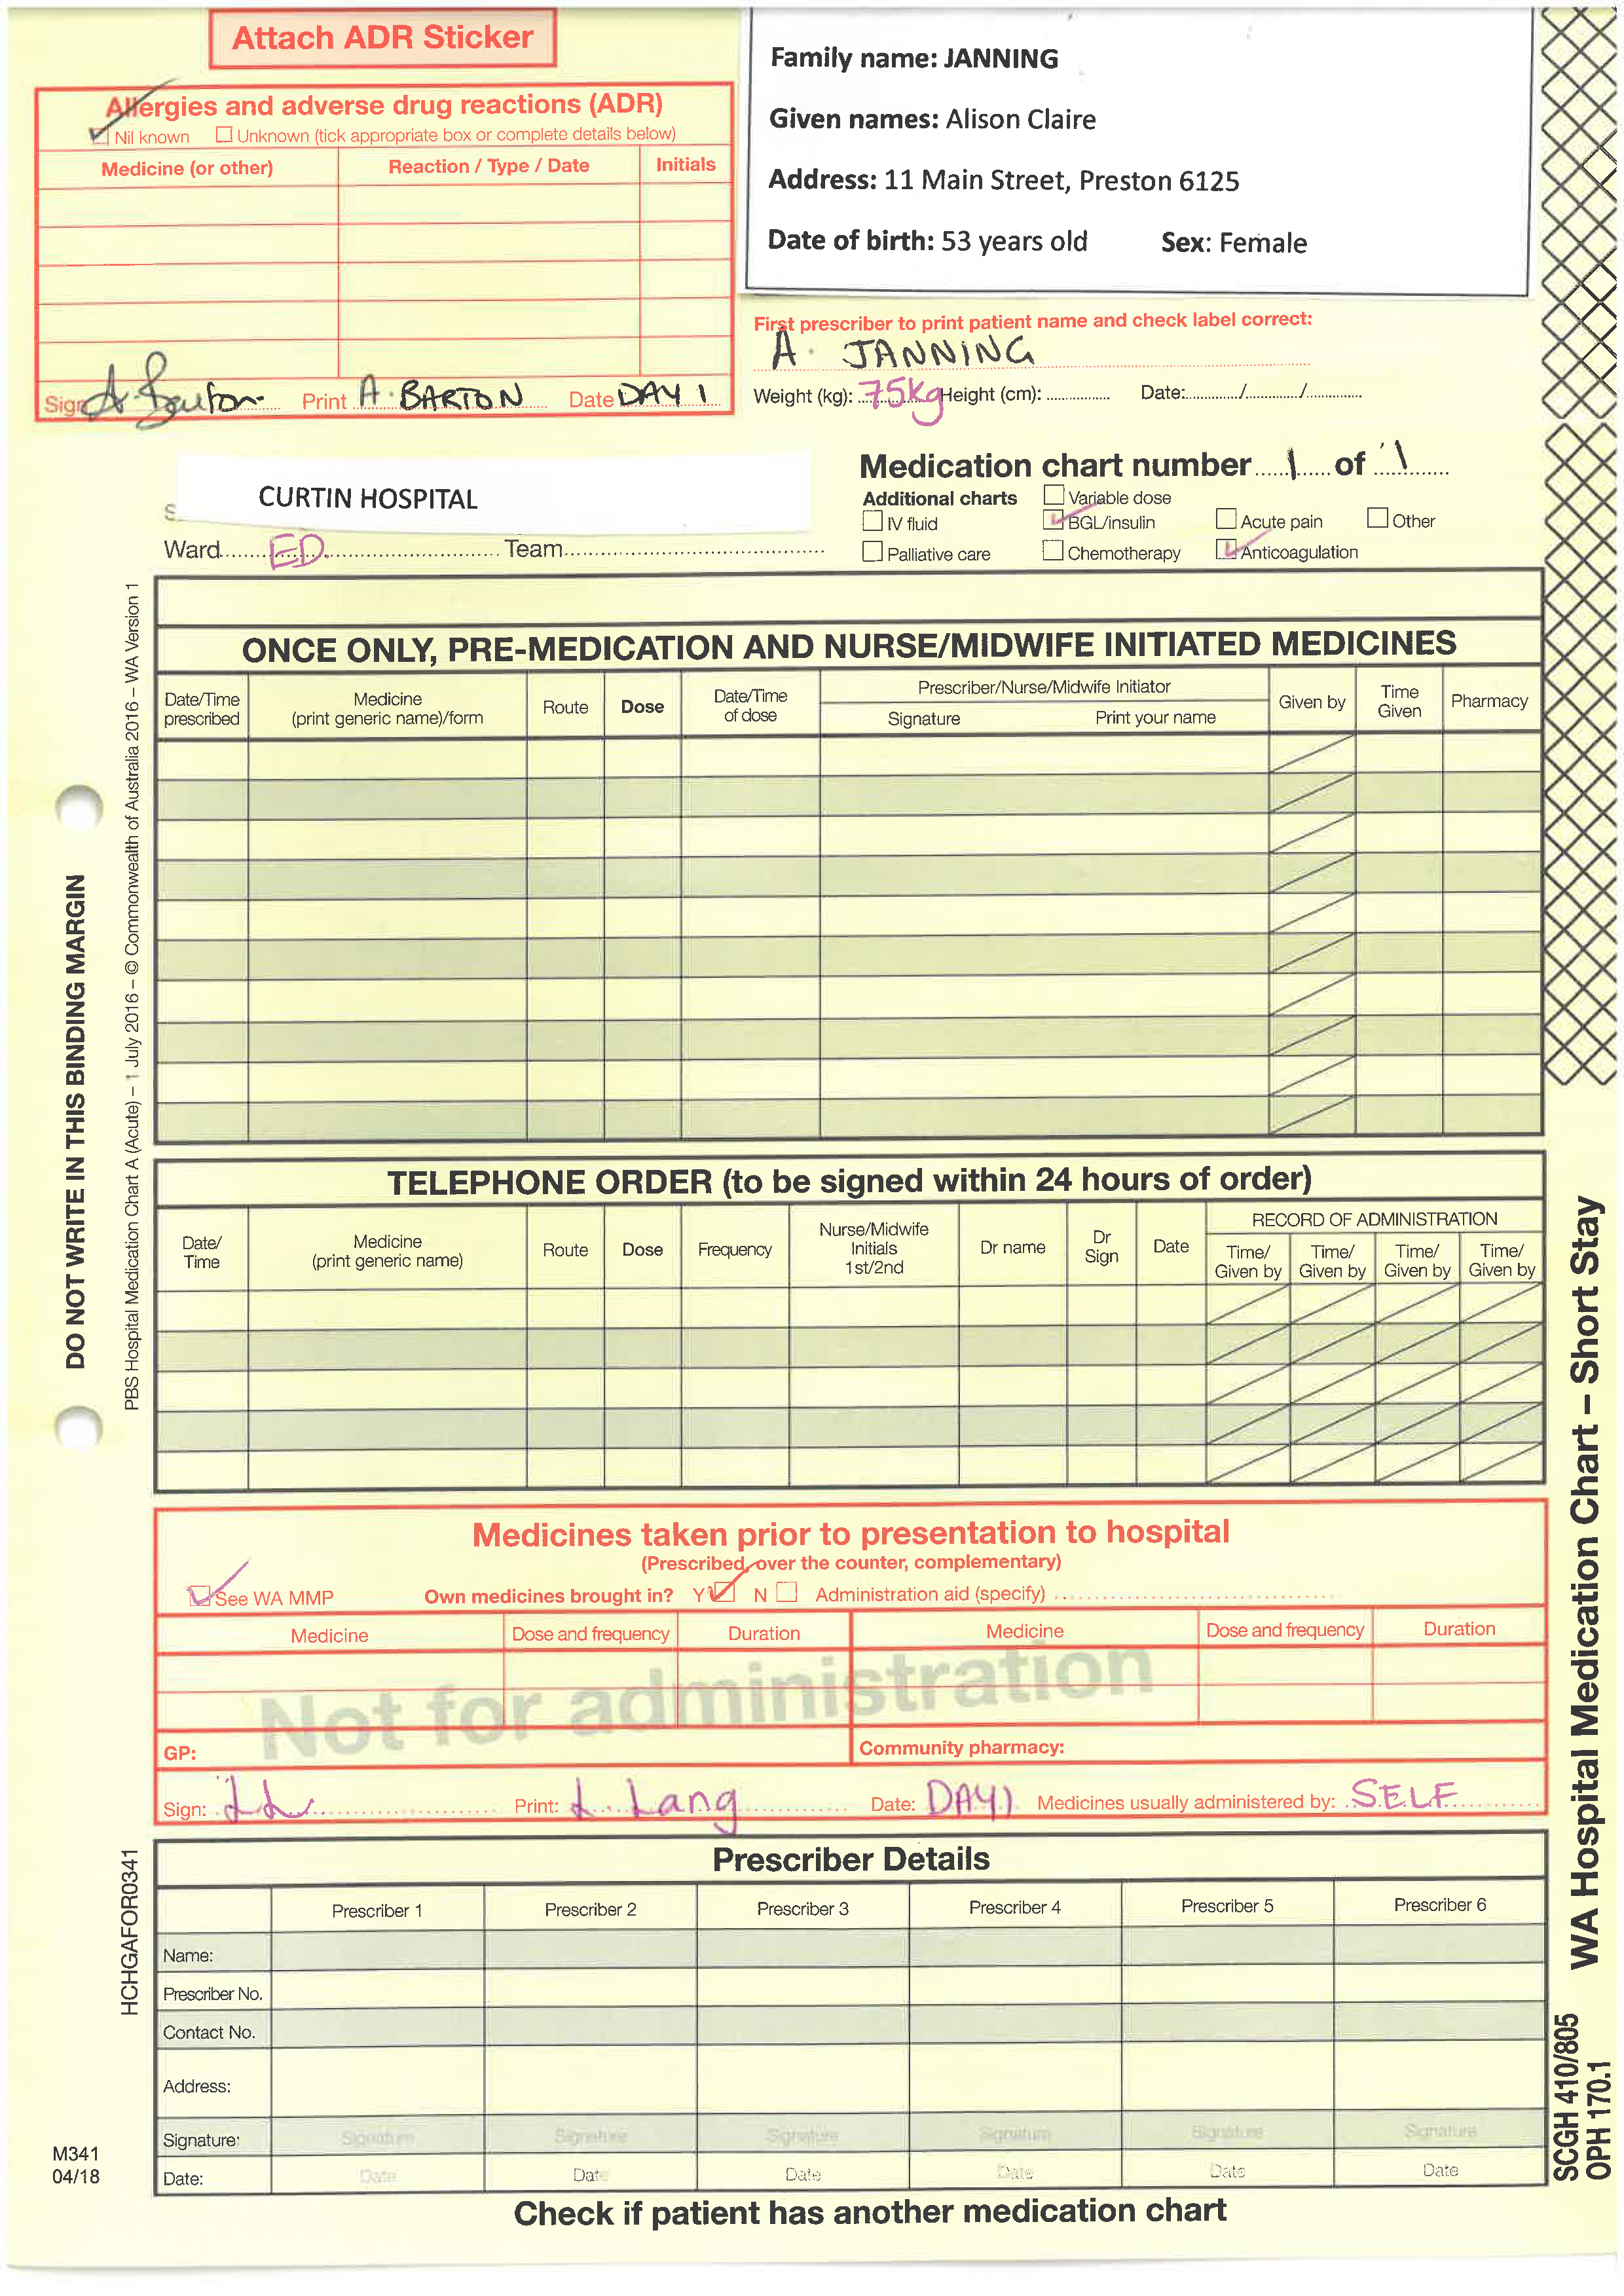 Attach ADR Sticker
Allergies and adverse drug reactions (ADR)
Nil known Unknown (tick appropriate box or complete details below)
Medicine (or other) Reaction / Type / Date Initials
Sign A. Barton Print A. BARTON Date DAY 1
Family name: JANNING
Given names: Alison Claire
Address: 11 Main Street, Preston 6125
Date of birth: 53 years old Sex: Female
First prescriber to print patient name and check label correct:
A. JANNING
Weight (kg): 75kg Height (cm): Date: / /
CURTIN HOSPITAL
Ward ED Team
Medication chart number 1 of 1
Additional charts Variable dose
IV fluid BGL/insulin Acute pain Other
Palliative care Chemotherapy Anticoagulation
ONCE ONLY, PRE-MEDICATION AND NURSE/MIDWIFE INITIATED MEDICINES
Date/Time prescribed Medicine (print generic name)/form Route Dose Date/Time of dose Prescriber/Nurse/Midwife Initiator Given by Time Given Pharmacy
Signature Print your name
TELEPHONE ORDER (to be signed within 24 hours of order)
Date/ Time Medicine (print generic name) Route Dose Frequency Nurse/Midwife Initials 1st/2nd Dr name Dr Sign Date RECORD OF ADMINISTRATION
Time/ Given by Time/ Given by Time/ Given by Time/ Given by
Medicines taken prior to presentation to hospital
(Prescribed, over the counter, complementary)
See WA MMP Own medicines brought in? Y N Administration aid (specify)
Medicine Dose and frequency Duration Medicine Dose and frequency Duration
Not for administration
GP: Community pharmacy:
Sign: LL Print: L. Lang Date: DAY 1 Medicines usually administered by: SELF
Prescriber Details
Prescriber 1 Prescriber 2 Prescriber 3 Prescriber 4 Prescriber 5 Prescriber 6
Name:
Prescriber No.
Contact No.
Address:
Signature: Signature Signature Signature Signature Signature Signature
Date: Date Date Date Date Date Date
Check if patient has another medication chart
DO NOT WRITE IN THIS BINDING MARGIN
PBS Hospital Medication Chart A (Acute) – 1 July 2016 – © Commonwealth of Australia 2016 – WA Version 1
HCHGAFOR0341
M341
04/18
WA Hospital Medication Chart – Short Stay
SCGH 410/805
OPH 170.1